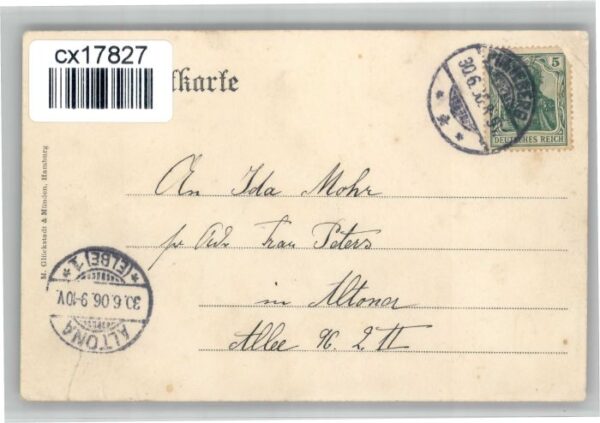 cx17827
fkarte
5
DEUTSCHES REICH
30.6.
An Ida Mohr
pr Adr Frau Peters
in Altona
Allee 96. 2 II
M. Glückstadt & Münden, Hamburg
*(ELBE) 1*
30.6.06.9-10V.
ALTONA